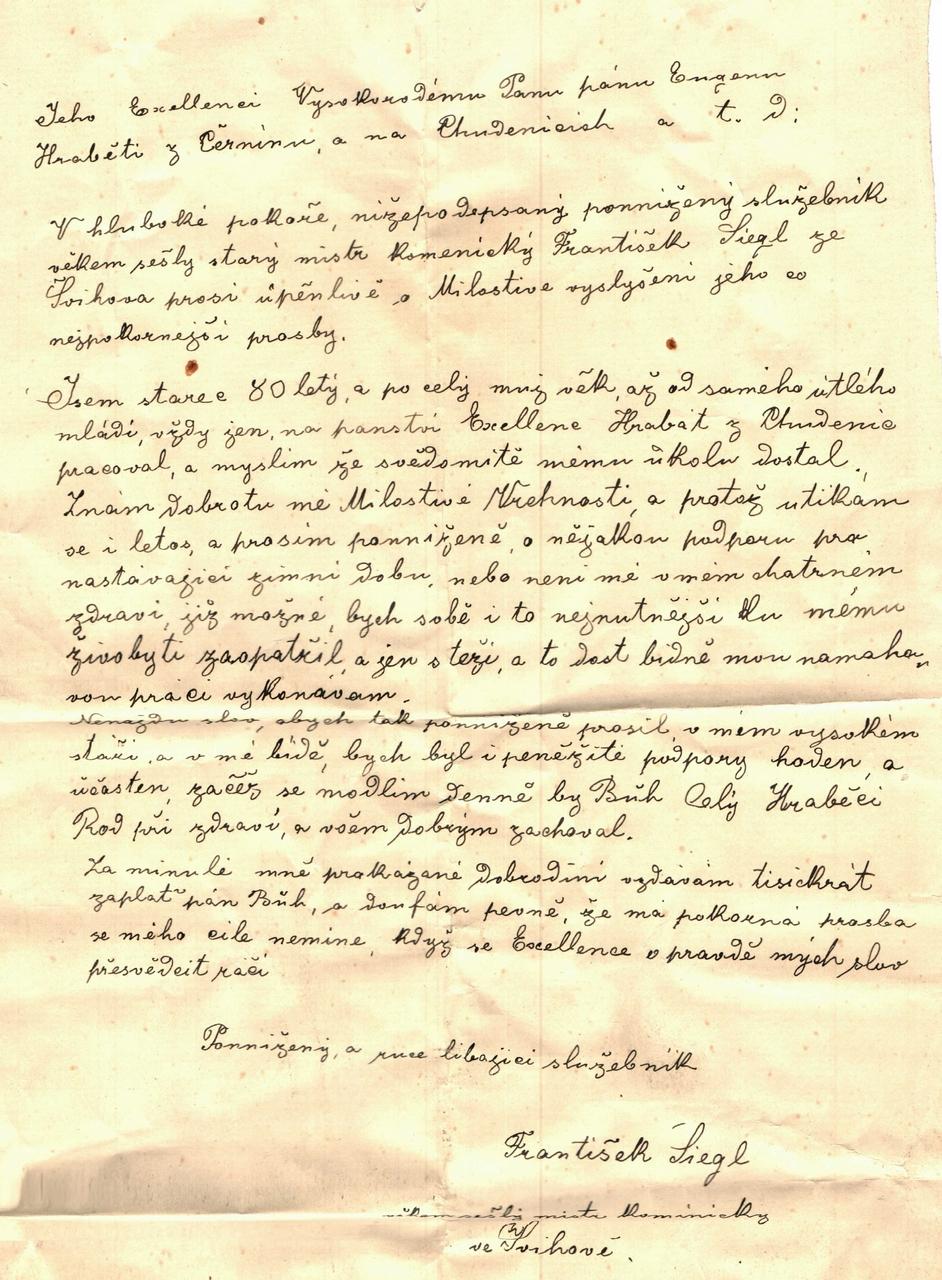 Jeho Excellenci Vysokorodému Panu pánu Eugenu
Hraběti z Černínu, a na Chudenicích a t. d:
V hluboké pokoře, nížepodepsaný ponnižený služebník
věkem sešlý starý mistr komenický František Siegl ze
Švihova prosí úpěnlivě o Milostive vyslyšení jeho co
nejpokornejší prosby.
Jsem starec 80 letý, a po celý muj věk, až od samého útlého
mládí, vždy jen, na panství Excellenc Hrabat z Chudenic
pracoval, a myslim že svědomitě mému úkolu dostal.
Znám dobrotu mé Milostivé Vrchnosti, a protož utikám
se i letos, a prosím ponniženě, o nějakou podporu pro
nastávající zimni dobu, nebo neni mé v mém chatrném
zdraví, již možné, bych sobě i to nejnutnější ku mému
živobytí zaopatřil, a jen s teži, a to dost bidně mou namaha„
vou práci vykonávam.
Nenajdu slov, abych tak ponniženě prosil, v mém vysokém
stáří, a v mé bídě, bych byl i peněžité podpory hoden, a
účásten, začěž se modlim denně by Bůh Celý Hraběcí
Rod při zdraví, a všem dobrým zachoval.
Za minulé mně prokázané dobrodiní vzdávám tisíckrát
zaplať pán Bůh, a doufám pevně, že má pokorná prosba
se mého cile nemine, když se Excellence o pravdě mých slov
přesvědcit ráčí
Ponnižený, a ruce líbající služebník
František Siegl
věkem sešlý mistr kominický
ve Švihově.